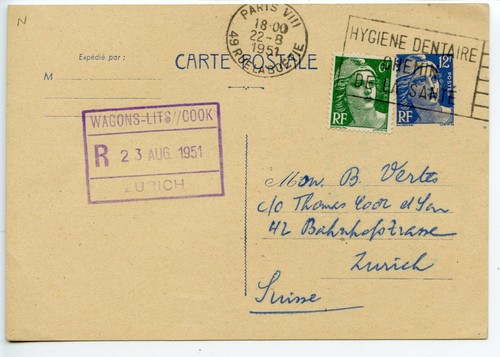 N
PARIS VIII
18-00
22-8
1951
49 RUE LA BOETIE
HYGIENE DENTAIRE
CHEMIN
DE LA SANTE
Expédié par :
CARTE POSTALE
M
6F
RF
12F
POSTES
RF
WAGONS-LITS//COOK
R 23 AUG. 1951
ZURICH
Mon. B. Vertes
c/o Thomas Cook & Son
42 Bahnhofstrasse
Zurich
Suisse